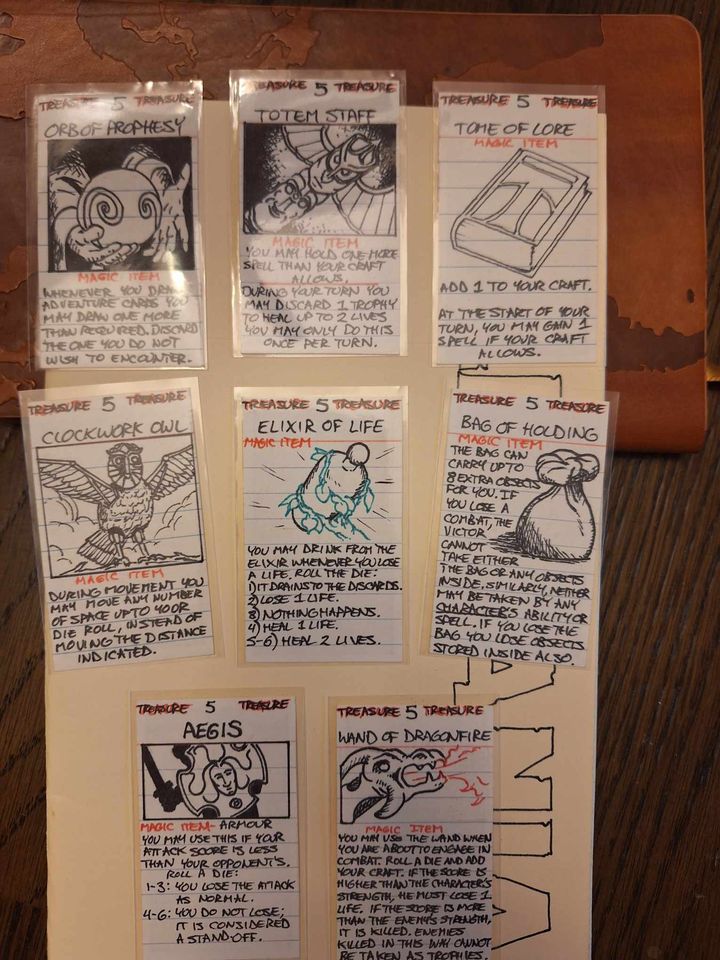 TREASURE 5 TREASURE
ORB OF PROPHESY
MAGIC ITEM
WHENEVER YOU DRAW
ADVENTURE CARDS YOU
MAY DRAW ONE MORE
THAN REQUIRED. DISCARD
THE ONE YOU DO NOT
WISH TO ENCOUNTER.
TREASURE 5 TREASURE
TOTEM STAFF
MAGIC ITEM
YOU MAY HOLD ONE MORE
SPELL THAN YOUR CRAFT
ALLOWS.
DURING YOUR TURN YOU
MAY DISCARD 1 TROPHY
TO HEAL UP TO 2 LIVES
YOU MAY ONLY DO THIS
ONCE PER TURN.
TREASURE 5 TREASURE
TOME OF LORE
MAGIC ITEM
ADD 1 TO YOUR CRAFT.
AT THE START OF YOUR
TURN, YOU MAY GAIN 1
SPELL IF YOUR CRAFT
ALLOWS.
TREASURE 5 TREASURE
CLOCKWORK OWL
MAGIC ITEM
DURING MOVEMENT YOU
MAY MOVE ANY NUMBER
OF SPACE UP TO YOUR
DIE ROLL, INSTEAD OF
MOVING THE DISTANCE
INDICATED.
TREASURE 5 TREASURE
ELIXIR OF LIFE
MAGIC ITEM
YOU MAY DRINK FROM THE
ELIXIR WHENEVER YOU LOSE
A LIFE. ROLL THE DIE:
1) IT DRAINS TO THE DISCARDS.
2) LOSE 1 LIFE.
3) NOTHING HAPPENS.
4) HEAL 1 LIFE.
5-6) HEAL 2 LIVES.
TREASURE 5 TREASURE
BAG OF HOLDING
MAGIC ITEM
THE BAG CAN
CARRY UP TO
8 EXTRA OBJECTS
FOR YOU. IF
YOU LOSE A
COMBAT, THE
VICTOR
CANNOT
TAKE EITHER
THE BAG OR ANY OBJECTS
INSIDE. SIMILARLY, NEITHER
MAY BE TAKEN BY ANY
CHARACTER'S ABILITY OR
SPELL. IF YOU LOSE THE
BAG YOU LOSE OBJECTS
STORED INSIDE ALSO.
TREASURE 5 TREASURE
AEGIS
MAGIC ITEM - ARMOUR
YOU MAY USE THIS IF YOUR
ATTACK SCORE IS LESS
THAN YOUR OPPONENT'S.
ROLL A DIE:
1-3: YOU LOSE THE ATTACK
AS NORMAL.
4-6: YOU DO NOT LOSE;
IT IS CONSIDERED
A STAND-OFF.
TREASURE 5 TREASURE
WAND OF DRAGONFIRE
MAGIC ITEM
YOU MAY USE THE WAND WHEN
YOU ARE ABOUT TO ENGAGE IN
COMBAT. ROLL A DIE AND ADD
YOUR CRAFT. IF THE SCORE IS
HIGHER THAN THE CHARACTER'S
STRENGTH, HE MUST LOSE 1
LIFE. IF THE SCORE IS MORE
THAN THE ENEMY'S STRENGTH,
IT IS KILLED. ENEMIES
KILLED IN THIS WAY CANNOT
BE TAKEN AS TROPHIES.